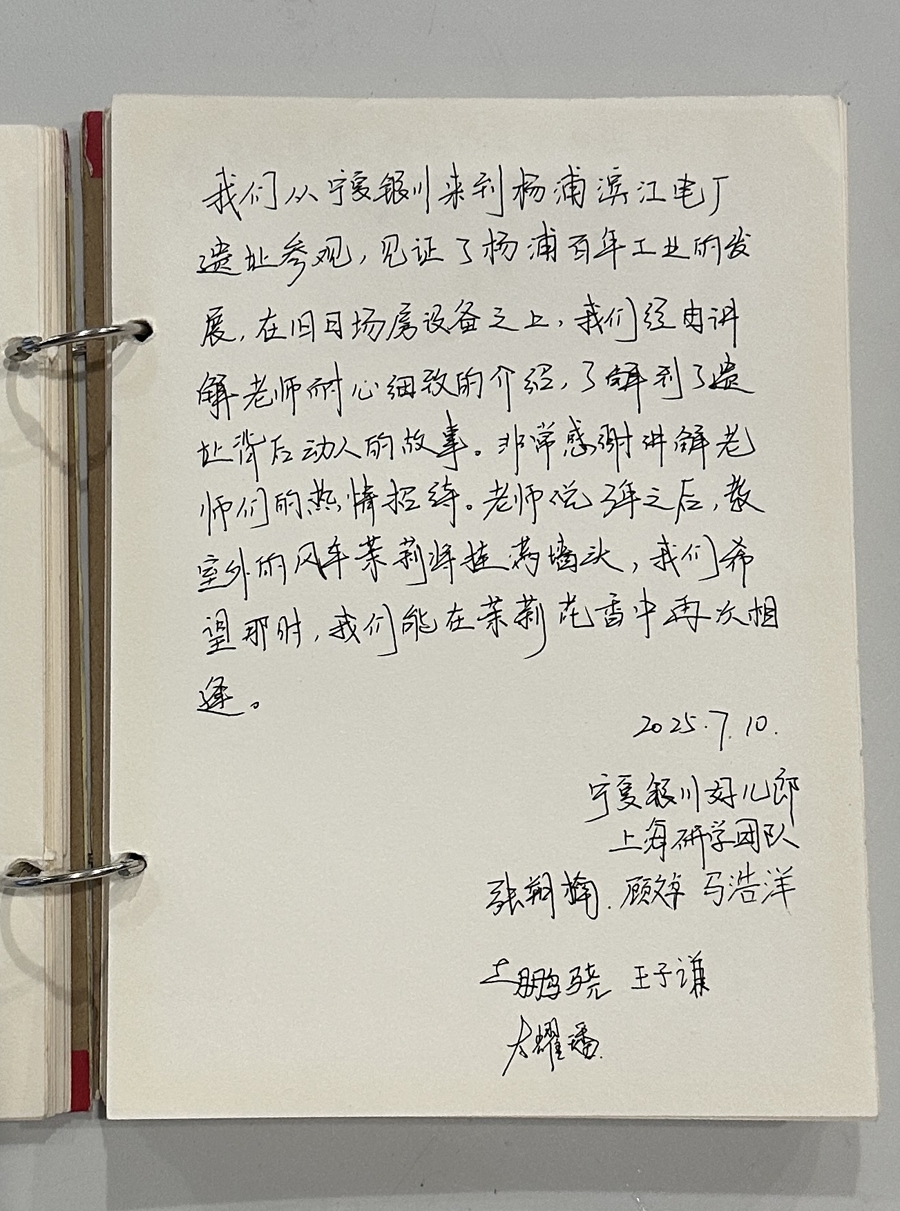 我们从宁夏银川来到杨浦滨江电厂
遗址参观，见证了杨浦百年工业的发
展，在旧日场房设备之上，我们经由讲
解老师耐心细致的介绍，了解到了遗
址背后动人的故事。非常感谢讲解老
师们的热情招待。老师说3年之后，教
室外的风车茉莉将挂满墙头，我们希
望那时，我们能在茉莉花香中再次相
逢。
2025.7.10.
宁夏银川好儿郎
上海研学团队
张朔楠.顾焯 马浩洋
鹏骁 王子谦
耀